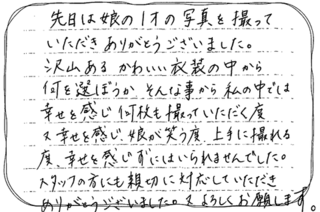 先日は娘の1才の写真を撮って
いただきありがとうございました。
沢山あるかわいい衣装の中から
何を選ぼうか、そんな事から私の中では
幸せを感じ何枚も撮っていただく度
又幸せを感じ、娘が笑う度、上手に撮れる
度、幸せを感じずにはいられませんでした。
スタッフの方にも親切に対応していただき
ありがとうございました。又よろしくお願します。